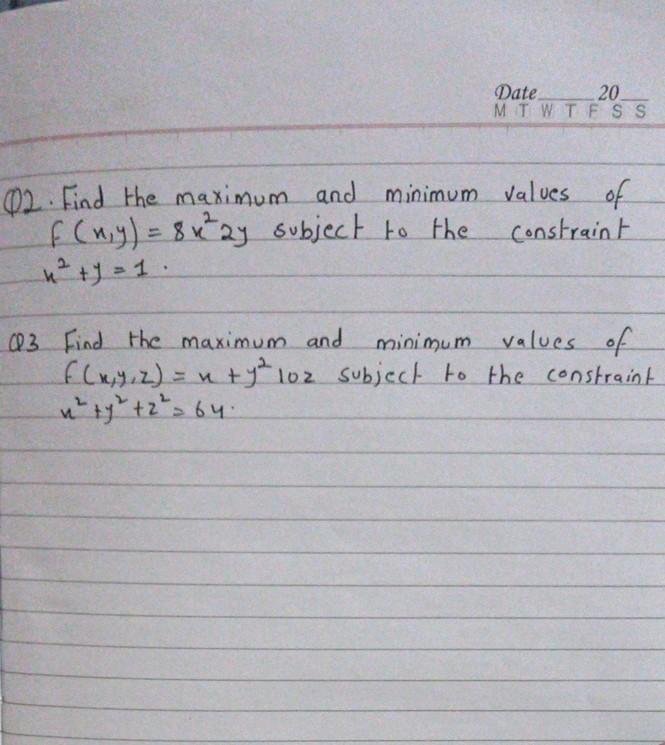 Date 20
M T W T F S S
Q2. Find the maximum and minimum values of
f(x,y) = 8x²2y subject to the constraint
x² + y = 1.
Q3 Find the maximum and minimum values of
f(x,y,z) = x + y² 10z subject to the constraint
x² + y² + z² = 64.